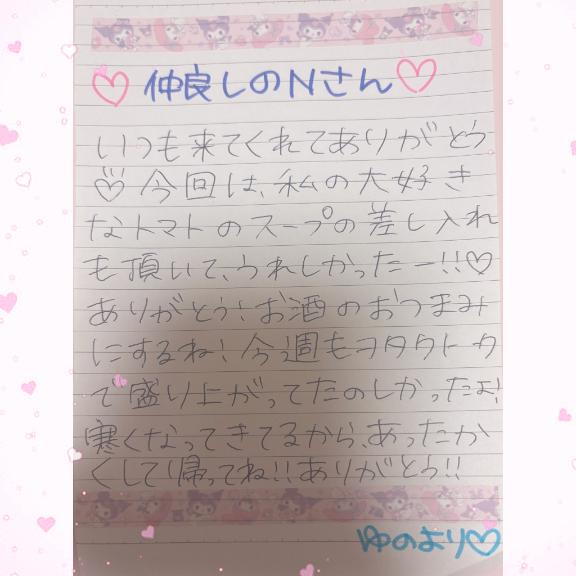 ♡仲良しのNさん♡
いつも来てくれてありがとう
♡今回は、私の大好き
なトマトのスープの差し入れ
も頂いて、うれしかったー!!♡
ありがとう!お酒のおつまみ
にするね!今週もヲタクトーク
で盛り上がってたのしかったよ!
寒くなってきてるから、あったか
くして帰ってね!!ありがとう!!
ゆのより♡